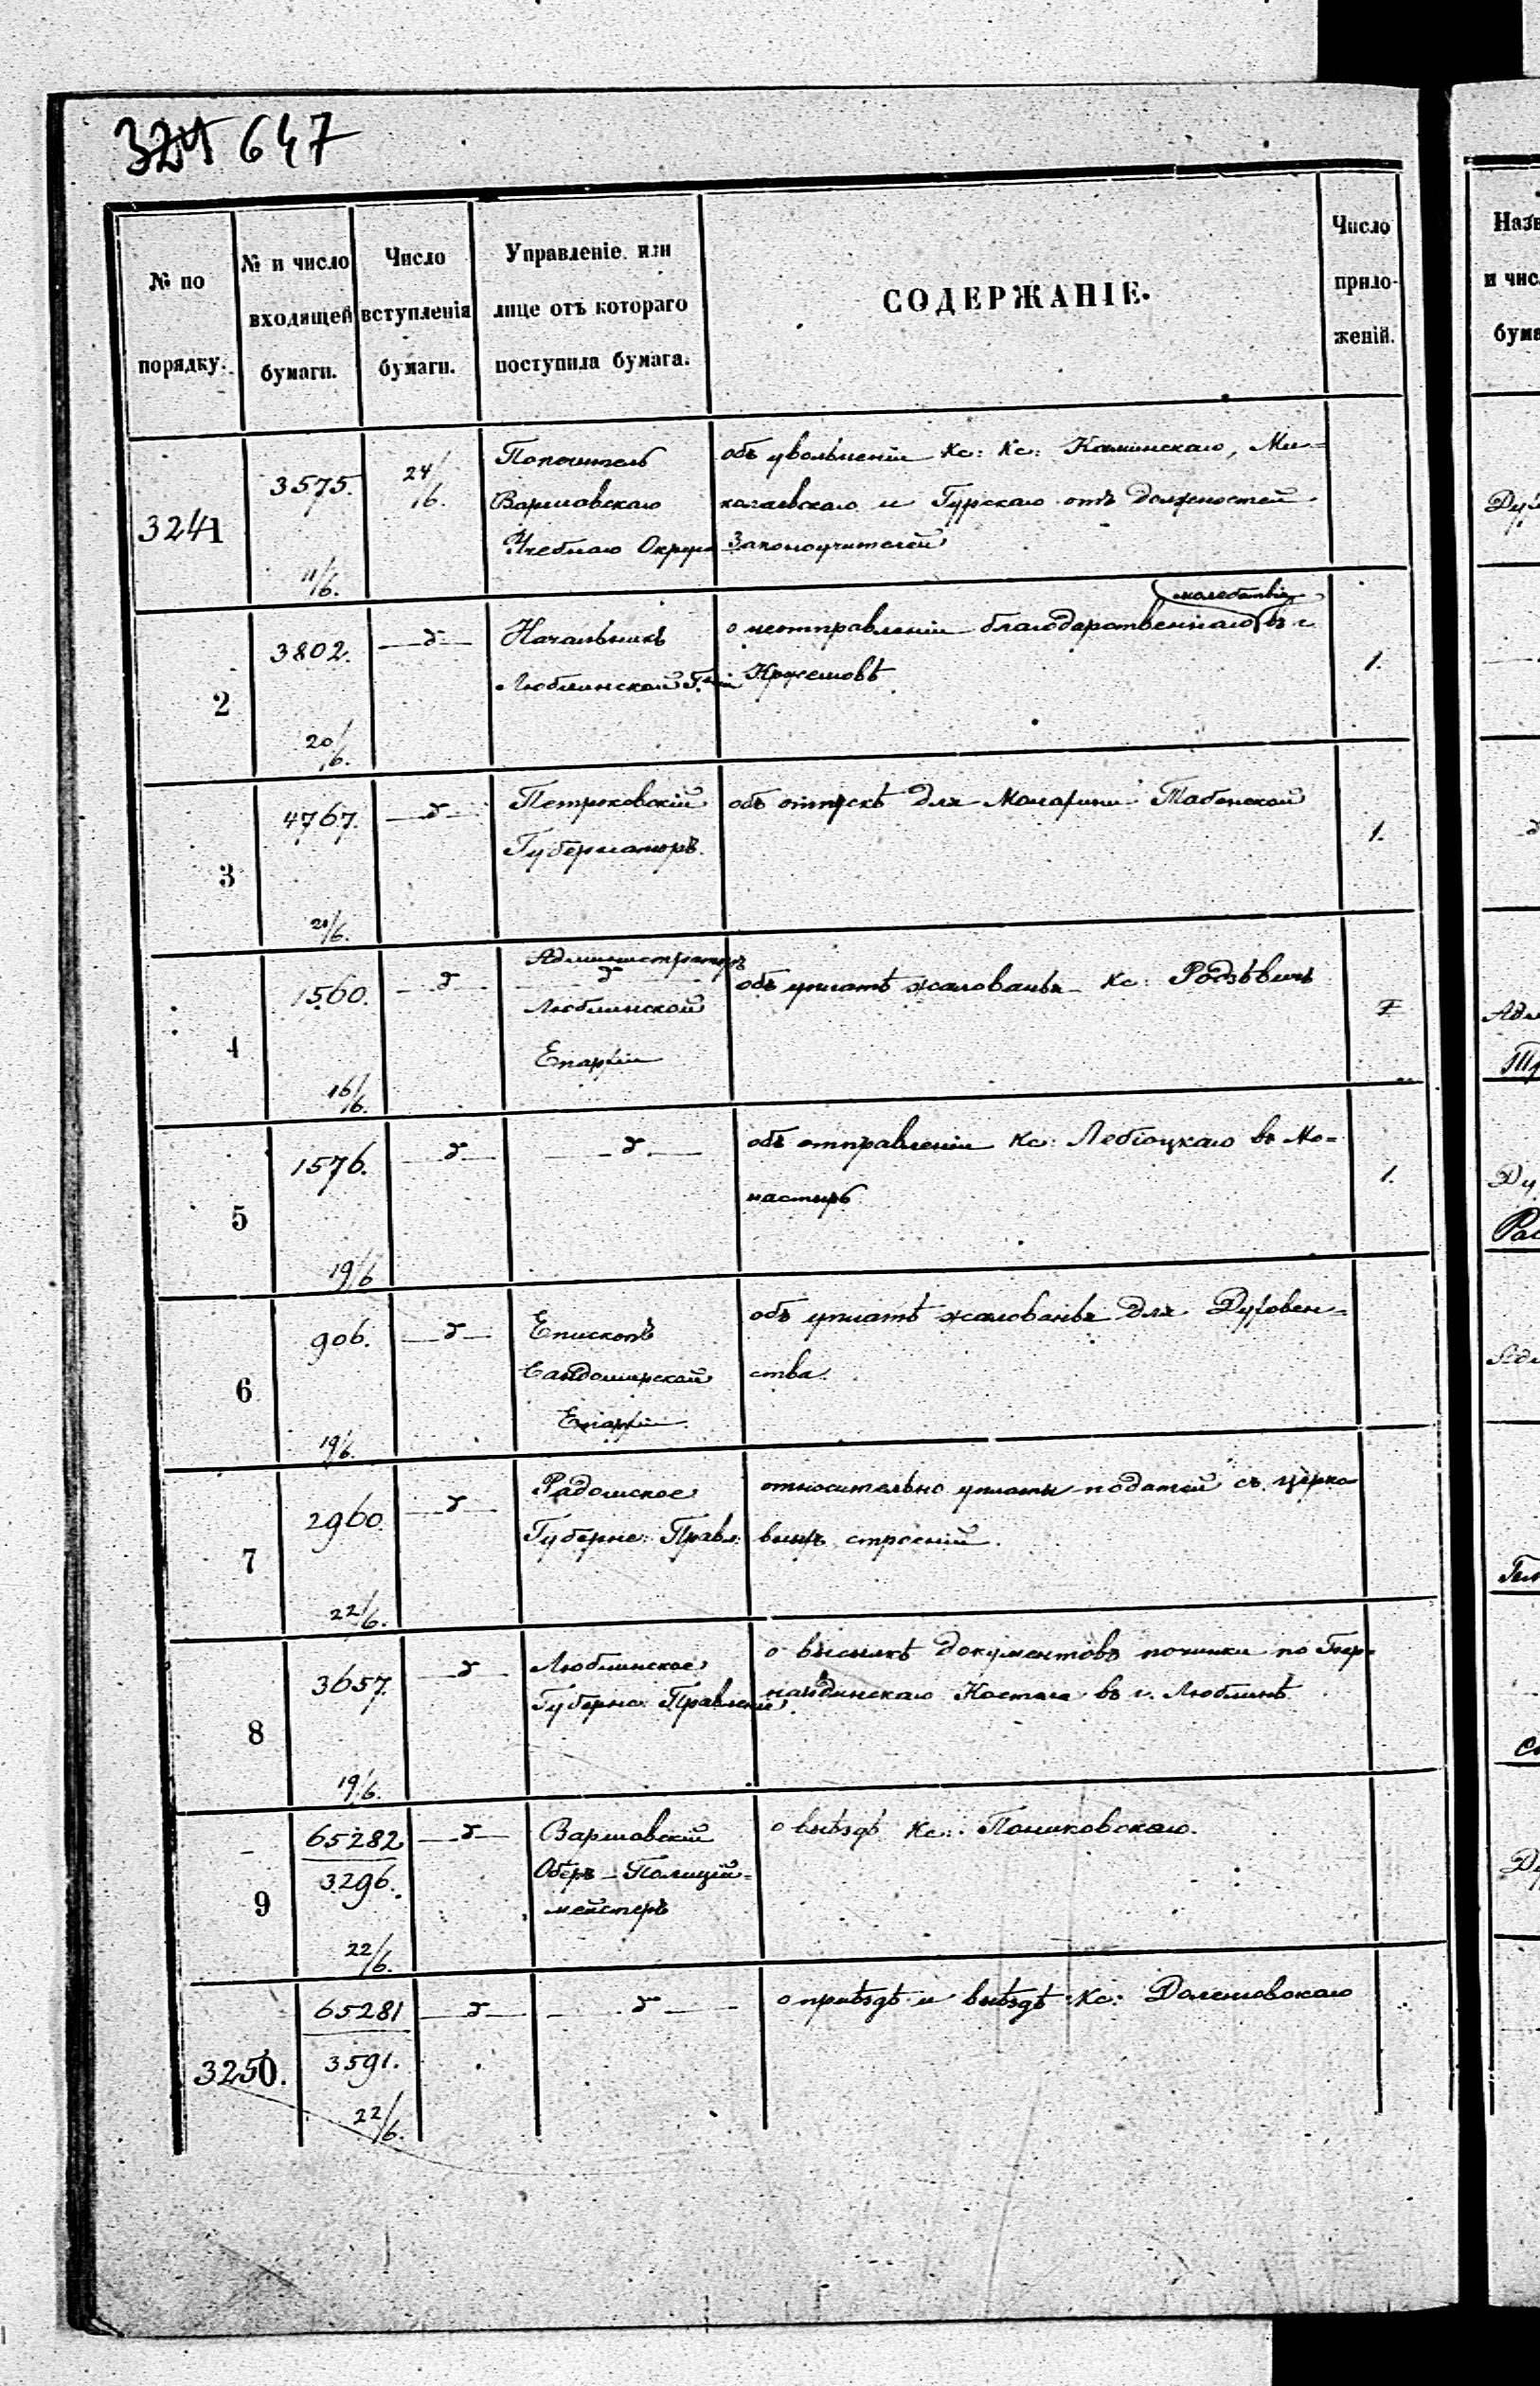 324 647
№ по порядку.
№ и число входящей бумаги.
Число вступленія бумаги.
Управленіе или лице отъ котораго поступила бумага.
СОДЕРЖАНІЕ.
Число приложеній.
3241
3575.
11/6.
24/6.
Попечитель
Варшавскаго
Учебнаго Округа
объ увольненіи Кс: Кс: Каминскаго, Ми=
колаевскаго и Гурскаго отъ должностей
Законоучителей
2
3802.
20/6.
—д—
Начальникъ
Люблинской Губ.
о неотправленіи благодарственнаго молебствія въ г.
Кржешовѣ
1.
3
4767.
21/6.
—д—
Петроковскій
Губернаторъ.
объ отпускѣ для
1.
4
1560.
16/6.
—д—
Администраторъ
Люблинской
Епархіи
объ уплатѣ жалованья Кс: Родзѣвичъ
5
1576.
19/6
—д—
—д—
объ отправленіи Кс: Лебіоцкаго въ Мо=
настырь
1.
6
906.
19/6.
—д—
Епископъ
Сандомирской
Епархіи
объ уплатѣ жалованья для Духовен=
ства.
7
2960.
22/6.
—д—
Радомское
Губернс: Правл:
относительно уплаты податей съ церко
выхъ строеній.
8
3657.
19/6.
—д—
Люблинское
Губернс: Правленіе.
о высылкѣ документовъ починки по Бер=
нардинскаго Костела въ г. Люблинѣ
9
65282
3296.
22/6.
—д—
Варшавскій
Оберъ-Полицій=
мейстеръ
о выѣздѣ Кс: Пониковскаго.
3250.
65281
3591.
22/6.
—д—
—д—
о пріѣздѣ и выѣздѣ Кс: Далешовскаго